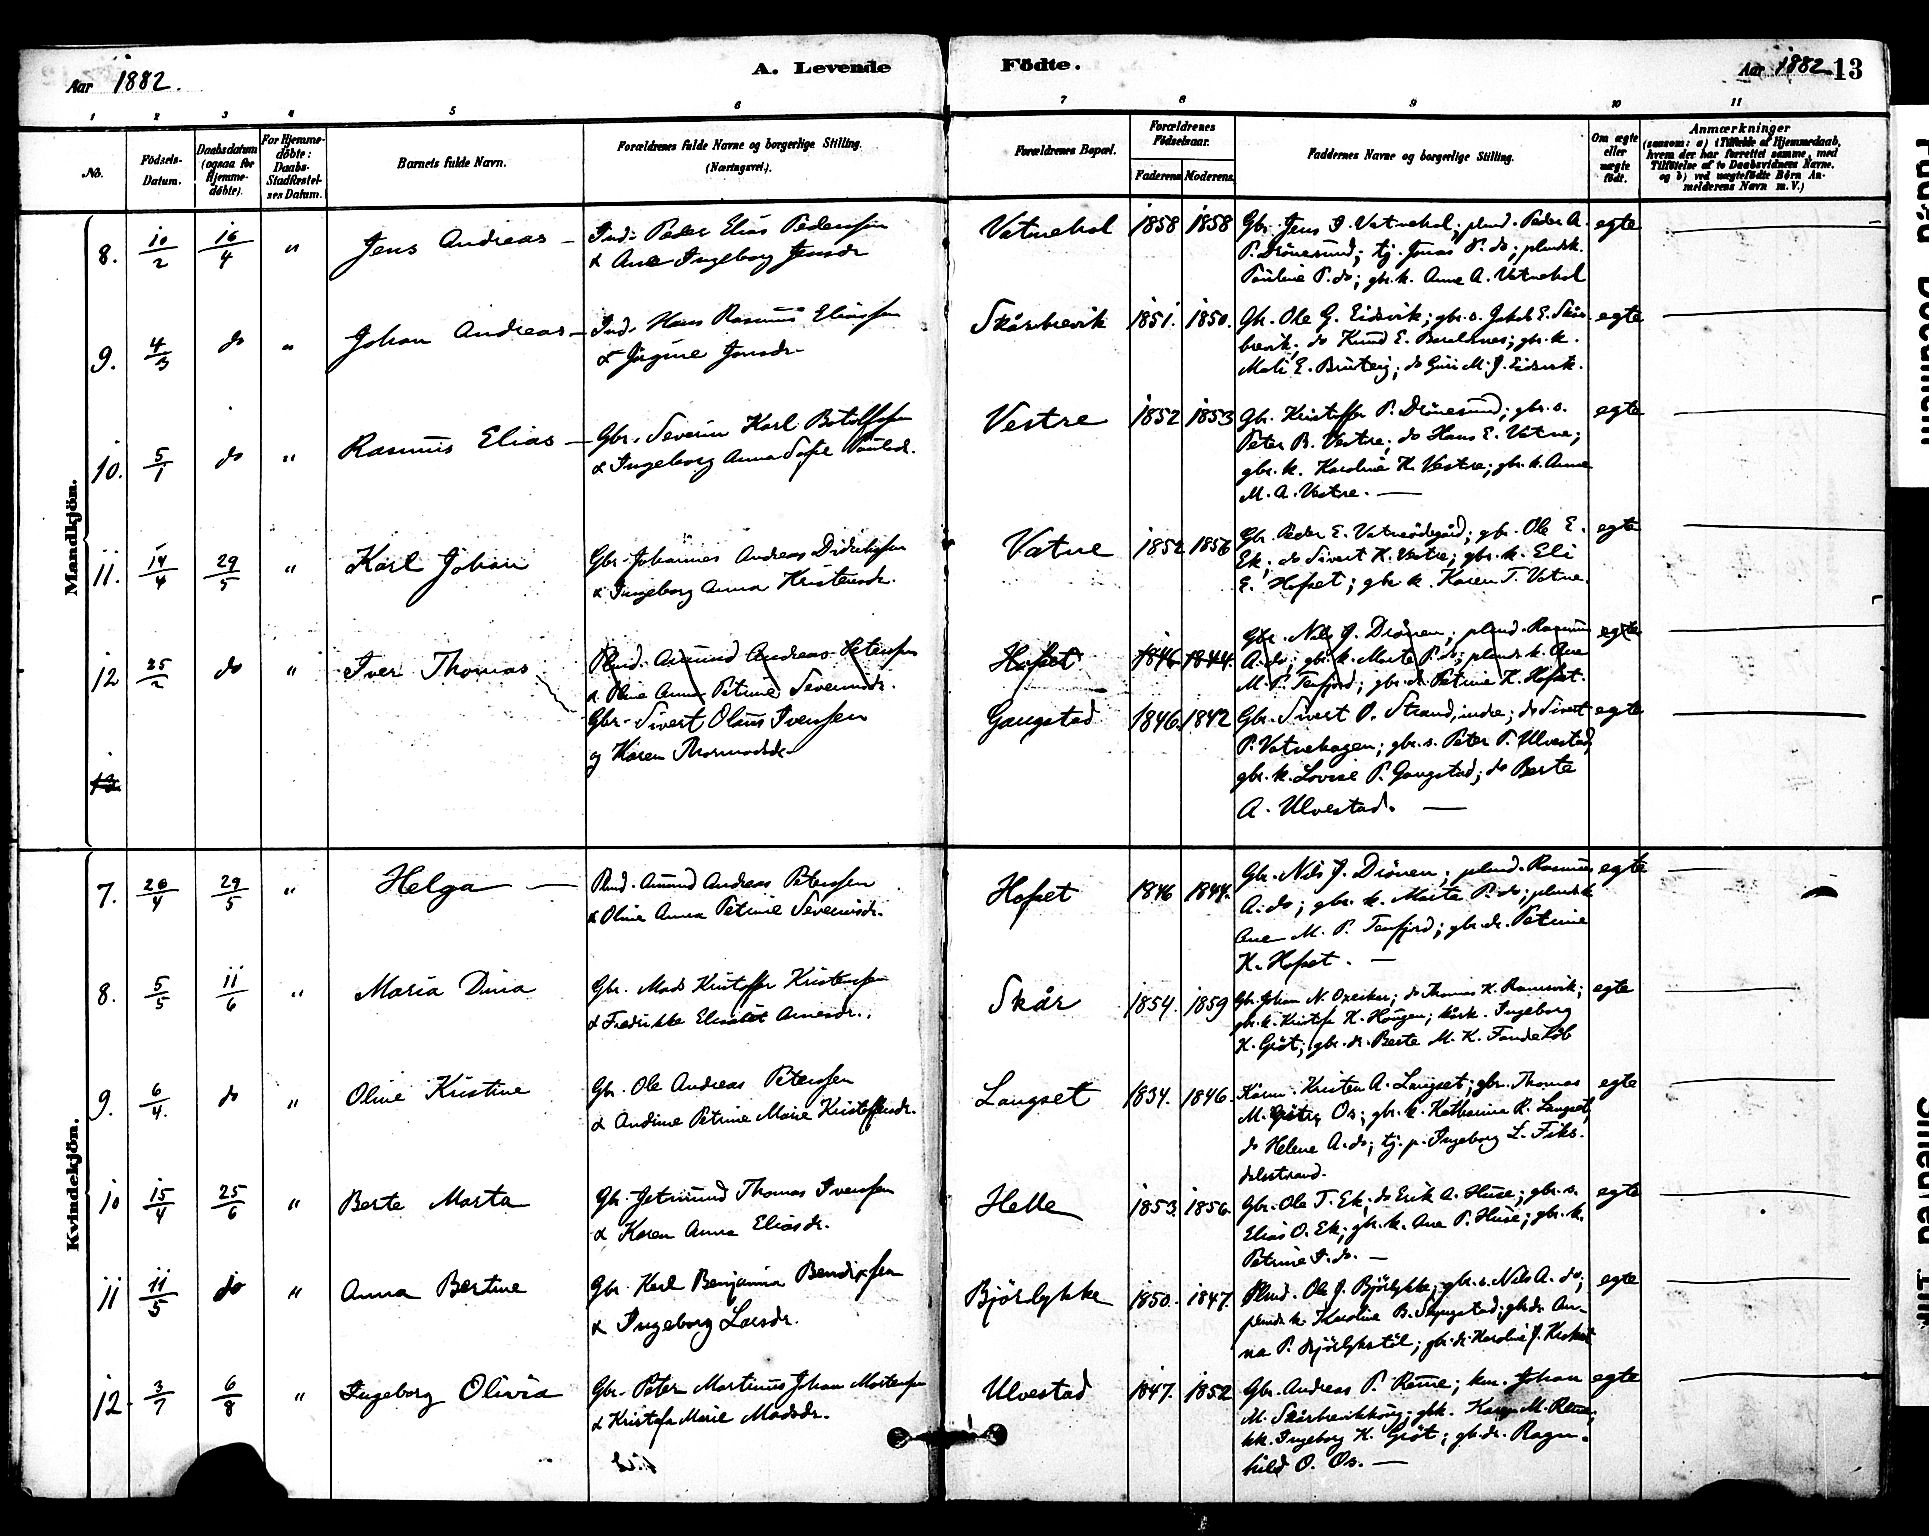 Aar 1882.
A. Levende Födte.
Aar 1882 13
1 2 3 4 5 6 7 8 9 10 11
No.
Födsels-Datum.
Daabsdatum (ogsaa for Hjemme-döbte).
For Hjemme-döbte: Daabs-Stadfæstel-ses Datum.
Barnets fulde Navn.
Forældrenes fulde Navne og borgerlige Stilling. (Næringsvei.)
Forældrenes Bopæl.
Forældrenes Födselsaar.
Faderens Moderens
Faddernes Navne og borgerlig Stilling.
Om ægte eller uægte födt.
Anmærkninger
(saasom: a) i Tilfælde af Hjemmedaab, hvem der har forrettet samme, med Tilföielse af to Daabsvidners Navne, og b) ved uægtefödte Börn An-melderens Navn m. V.)
Mandkjön.
8. 10/2 16/4 " Jens Andreas – Ind. Peder Elias Pedersen
& Ane Ingeborg Jensdr
Vatnehol 1858 1858 Gbr. Jens J. Vatnehol; plmd. Peder A.
P. Drönesund; tj. Jonas P. do; plmdsk.
Pauline P. do; gbr. k. Anne A. Vatnehol
egte
9. 4/3 do " Johan Andreas – Ind. Hans Rasmus Eliassen
& Jörgine Jonsdr.
Skårbrevik 1851. 1850. Gbr. Ole G. Eidsvik; gbr. s. Jakob E. Skår
brevik; do Knud E. ; gbr. k.
Mali E. Bruteig; do Guri M. J. Eidsvik.
egte
10. 5/1 do " Rasmus Elias – Gbr. Severin Karl Botolfsen
& Ingeborg Anna Sofie Paulsdr.
Vestre 1852 1853 Gbr. Kristoffer P. Drönesund; gbr. s.
Peter B. Vestre; do Hans E. Vatne;
gbr. k. Karoline K. Vestre; gbr. k. Anne
M. A. Vestre. –
egte
11. 14/4 29/5 " Karl Johan Gbr. Johannes Andreas Didriksen
& Ingeborg Anna Kristensdr.
Vatne 1852 1856 Gbr. Peder E. Vatneödegård; gbr. Ole E.
Ek; do Sivert K. Vestre; gbr. k. Eli
E. Hofset; gbr. k. Karen T. Vatne.
egte
12 25/2 do " Iver Thomas Plmd. Amund Andreas Petersen
& Oline Anna Petrine Severinsdr.
Hofset 1846 1844. Gbr. Nils J. Drönen; plmd. Rasmus
A. do; gbr. k. Marte P. do; plmds k. Ane
M. P. Tenfjord; gbr. dr. Petrine K. Hofset.
egte
Gbr. Sivert Olaus Iversen
og Karen Thormodsdr.
Gangstad 1846. 1842 Gbr. Sivert O. Strand, indre; do Sivert
P. Vatnehagen; gbr. s. Peter P. Ulvestad;
gbr. k. Lovise P. Gangstad; do Berte
A. Ulvestad. –
egte
13.
Kvindekjön.
7. 26/4 29/5 " Helga – Plmd. Amund Andreas Petersen
& Oline Anna Petrine Severinsdr.
Hofset 1846 1844. Gbr. Nils J. Drönen; plmd. Rasmus
A. do; gbr. k. Marta P. do; plmdsk
Ane M. P. Tenfjord; gbr. dr. Petrine
K. Hofset. –
egte
8. 5/5 11/6 " Maria Dina Gbr. Mads Kristoffer Kristensen
& Fredrikke Elisabet Arnesdr.
Skår 1854. 1859 Gbr. Johan N. ; do Thomas K. Ramsvik;
gbr. k. Kristofa K. Haugen; Ingeborg
K. Gröt; gbr. dr. Berte M. K.
egte
9. 6/4. do " Oline Kristine Gbr. Ole Andreas Petersen
& Andrine Petrine Marie Kristoffersdr.
Langset 1834. 1846. Kårm. Kristen A. Langset; gbr. Thomas
M. Os; gbr. k. Katharina R. Langset,
do Helene A. do; tj. p. Ingeborg L. Fiks-
dalsstrand.
egte
10 15/4 25/6 " Berte Marta Gbr. Jetmund Thomas Iversen
& Karen Anna Eliasdr.
Helle 1853. 1856. Gbr. Ole T. Ek; do Erik A. Huse; gbr. s.
Elias O. Ek; gbr. k. Ane P. Huse; gbr. k.
Petrine I. do. –
egte
11 11/5 do " Anna Bertine Gbr. Karl Benjamin Bendixsen
& Ingeborg Larsdr.
Björlykke 1850. 1847. Plmd. Ole J. Björlykke; gbr. s. Nils A. do;
plmds k. Karoline B. ; gbr. dr. An-
na P. Björlykstöl; gbr. dr. Karoline J.
egte
12 3/7 6/8 " Ingeborg Olivia Gbr. Peter Martinus Johan Martensen
& Kristofa Marie Madsdr.
Ulvestad 1847. 1852 Gbr. Andreas P. Reme; km. Johan
M. ; gbk. M. Reme;
Ingeborg K. Gröt; gb. dr. Ragn-
hild O. Os. –
egte